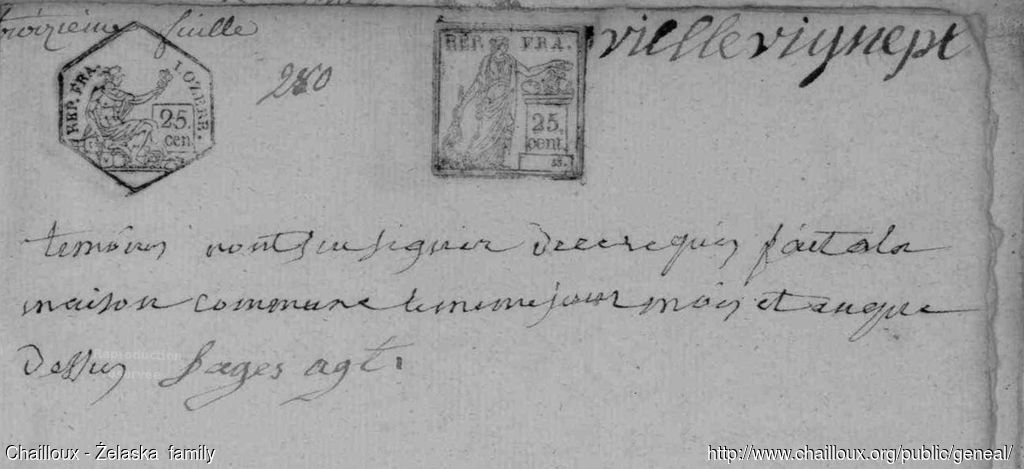 troizieme fuille
REP. FRA. LOZERE.
25. cen.
280
REP. FRA.
25. cent.
villevigne pt
temoins nont su signer de ce requis fait a la
maison commune le meme jour mois et an que
dessus Sages agt.
Reproduction
Chailloux - Želaska family
http://www.chailloux.org/public/geneal/